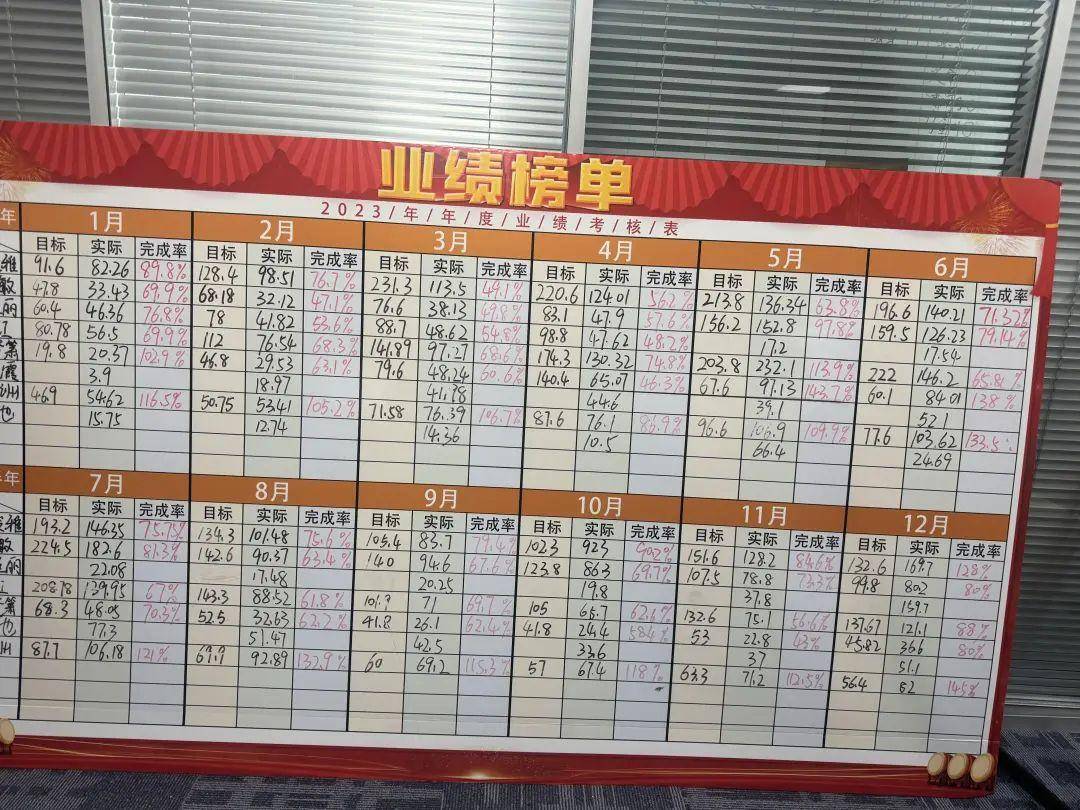 业绩榜单
2023/年/年/度/业/绩/考/核/表
年 1月 2月 3月 4月 5月 6月
目标 实际 完成率 目标 实际 完成率 目标 实际 完成率 目标 实际 完成率 目标 实际 完成率 目标 实际 完成率
維 91.6 82.26 89.8% 128.4 98.51 76.7% 231.3 113.5 49.1% 220.6 124.01 56.2% 213.8 136.34 63.8% 196.6 140.21 71.32%
敏 47.8 33.43 69.9% 68.18 32.12 47.1% 76.6 38.13 49.8% 83.1 47.9 57.6% 156.2 152.8 97.8% 159.5 126.23 79.14%
丽 60.4 46.36 76.8% 78 41.82 53.6% 88.7 48.62 54.8% 98.8 47.62 48.2% 17.2 17.54
80.78 56.5 69.9% 112 76.54 68.3% 141.89 97.27 68.6% 174.3 130.32 74.8% 203.8 232.1 113.9% 222 146.2 65.8%
萧 19.8 20.37 102.9% 46.8 29.53 63.1% 79.6 48.24 60.6% 140.4 65.07 46.3% 67.6 97.13 143.7% 60.1 84.01 138%
霞 3.9 18.97 41.78 44.6 39.1 52.1
州 46.9 54.62 116.5% 50.75 53.41 105.2% 71.58 76.39 106.7% 87.6 76.1 86.9% 96.6 106.9 109.9% 77.6 103.62 133.5
他 15.75 12.74 14.36 10.5 66.4 24.69
年 7月 8月 9月 10月 11月 12月
目标 实际 完成率 目标 实际 完成率 目标 实际 完成率 目标 实际 完成率 目标 实际 完成率 目标 实际 完成率
維 193.2 146.35 75.75% 134.3 101.48 75.6% 105.4 83.7 79.4% 102.3 92.3 90.2% 151.6 128.2 84.6% 132.6 169.7 128%
敏 224.5 182.6 81.3% 142.6 90.37 63.4% 140 94.6 67.6% 123.8 86.3 69.7% 107.5 78.8 73.3% 99.8 80.2 80%
丽 22.08 17.48 20.25 19.8 37.8 159.7
208.78 139.95 67% 143.3 88.52 61.8% 101.9 71 69.7% 105 65.7 62.6% 132.6 75.1 56.6% 137.67 121.1 88%
萧 68.3 48.05 70.3% 52.5 32.63 62.2% 41.8 26.1 62.4% 41.8 24.4 58.4% 53 22.8 43% 45.82 36.6 80%
他 77.3 51.47 42.5 33.6 37 51.1
州 87.7 106.18 121% 69.9 92.89 132.9% 60 69.2 115.3% 57 67.4 118% 63.3 71.2 112.5% 56.4 82 145%